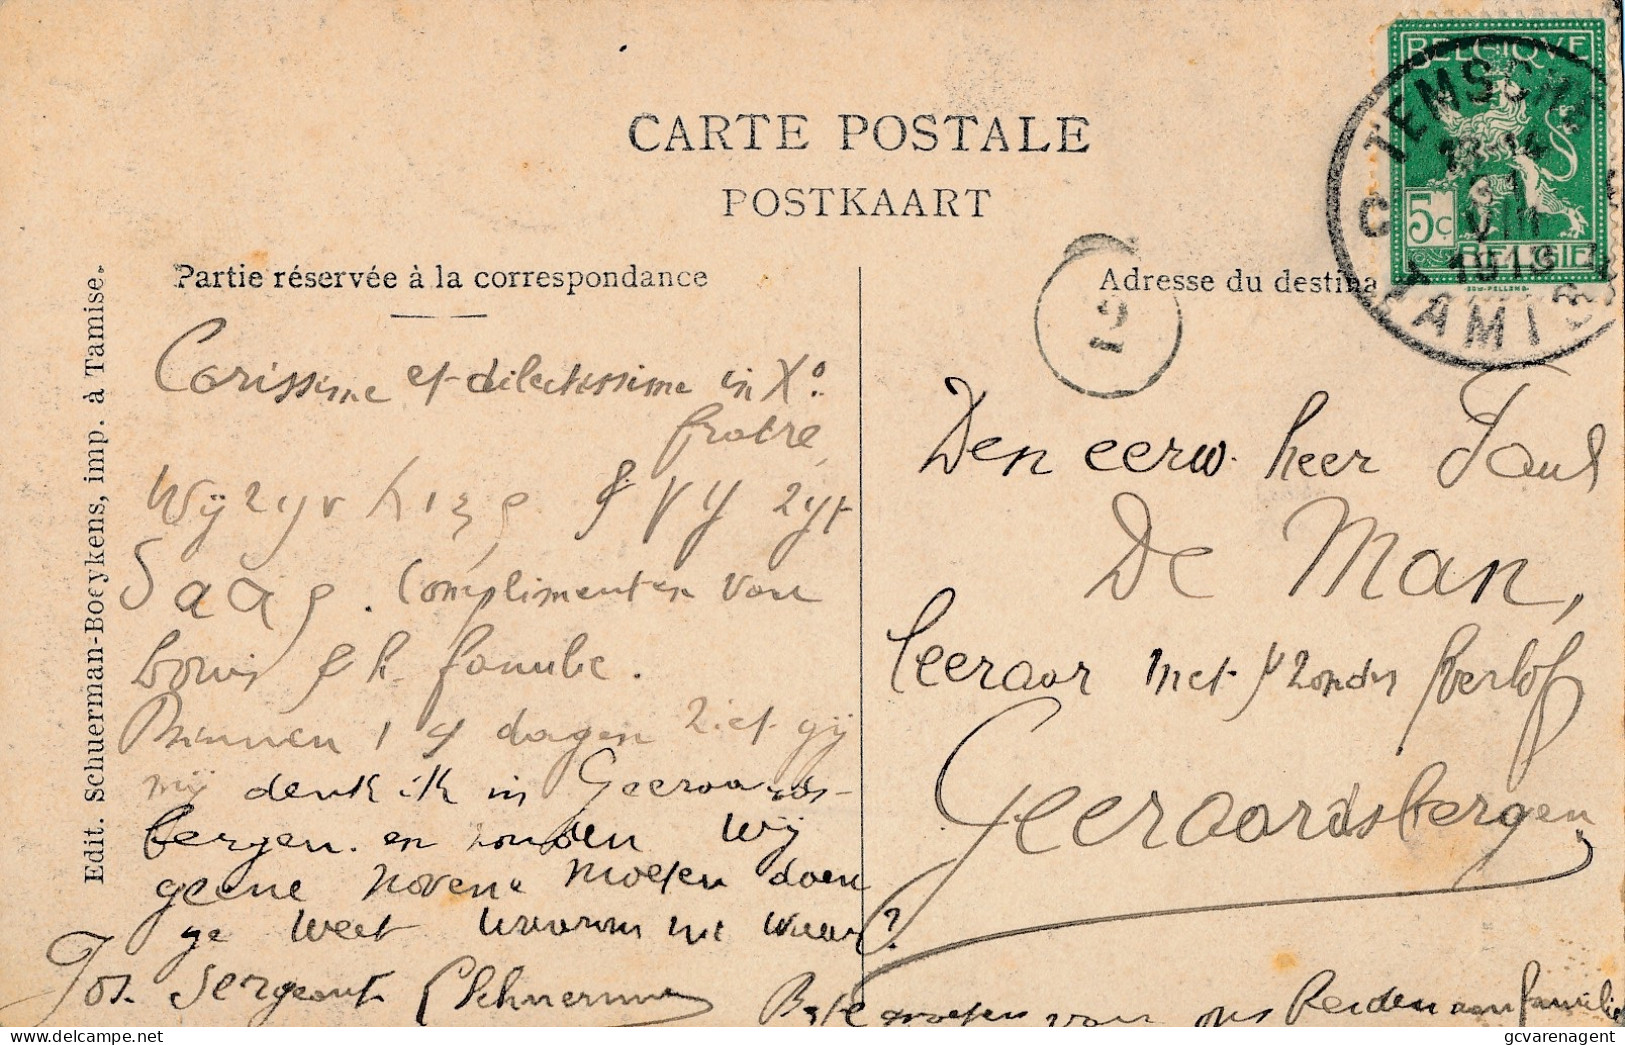 CARTE POSTALE
POSTKAART
Partie réservée à la correspondance
Adresse du destina
Edit. Schuerman-Boeykens, imp. à Tamise.
BELGIQUE
5c
BELGIË
TEMSCHE
TAMISE
13-14
31
VIII
1913
C
12
Carissime et dilectissime in Xº.
fratre,
Wij zijn
zijt
Complimenten van
familie.
Binnen dagen ziet gij
mij denk ik in Geeraards-
bergen. en zouden wij
geene novene moeten doen
ge weet waarom niet waar?
Jos. Sergeant
Beste groeten van ons Beiden aan familie
Den eerw. heer Paul
De Man,
leeraar met zonder verlof
Geeraardsbergen
© gcvarenagent